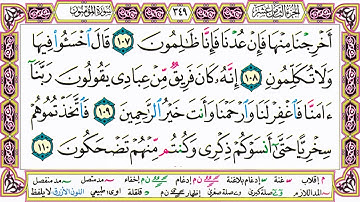 الجزء الثامن عشر ٣٤٩ سورة المؤمنون
أَخْرِجْنَا مِنْهَا فَإِنْ عُدْنَا فَإِنَّا ظَٰلِمُونَ ١٠٧ قَالَ ٱخْسَـُٔوا۟ فِيهَا
وَلَا تُكَلِّمُونِ ١٠٨ إِنَّهُۥ كَانَ فَرِيقٌ مِّنْ عِبَادِى يَقُولُونَ رَبَّنَآ
ءَامَنَّا فَٱغْفِرْ لَنَا وَٱرْحَمْنَا وَأَنتَ خَيْرُ ٱلرَّٰحِمِينَ ١٠٩ فَٱتَّخَذْتُمُوهُمْ
سِخْرِيًّا حَتَّىٰٓ أَنسَوْكُمْ ذِكْرِى وَكُنتُم مِّنْهُمْ تَضْحَكُونَ ١١٠